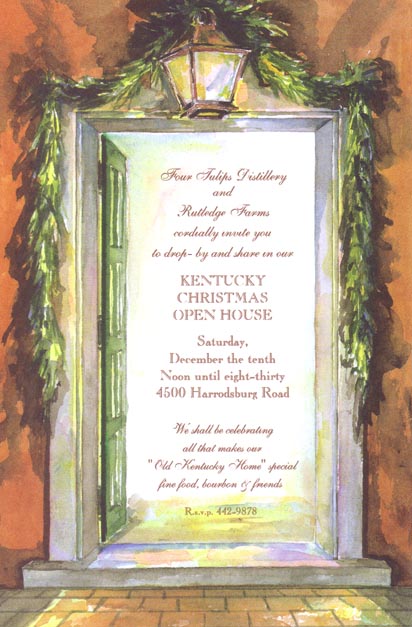 Four Tulips Distillery
and
Rutledge Farms
cordially invite you
to drop- by and share in our
KENTUCKY
CHRISTMAS
OPEN HOUSE
Saturday,
December the tenth
Noon until eight-thirty
4500 Harrodsburg Road
We shall be celebrating
all that makes our
"Old Kentucky Home" special
fine food, bourbon & friends
R.s.v.p. 442-9878